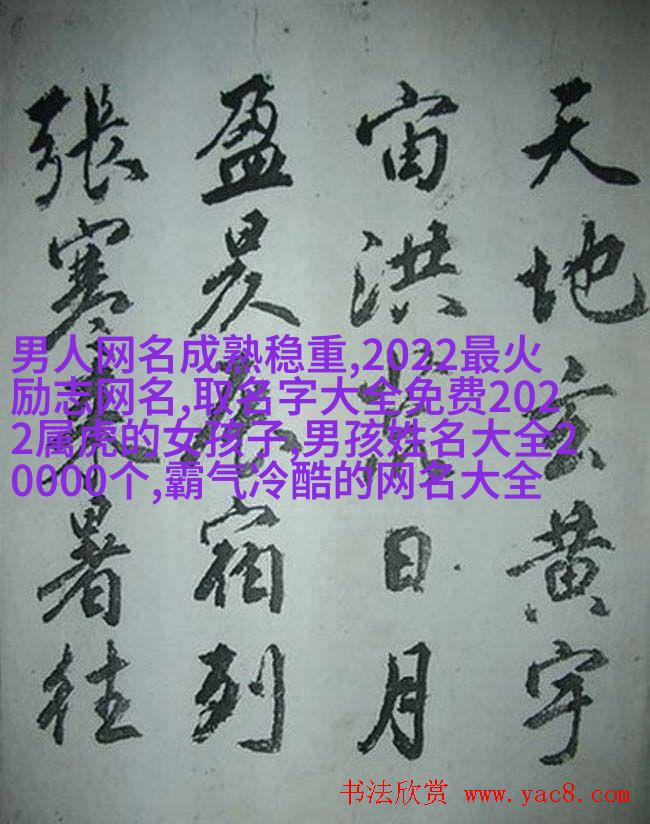 天地玄黄宇
宙洪荒日月
盈昃辰宿列
張寒来暑往
男人网名成熟稳重,2022最火
励志网名,取名字大全免费202
2属虎的女孩子,男孩姓名大全2
0000个,霸气冷酷的网名大全
书法欣赏 www.yac8.com